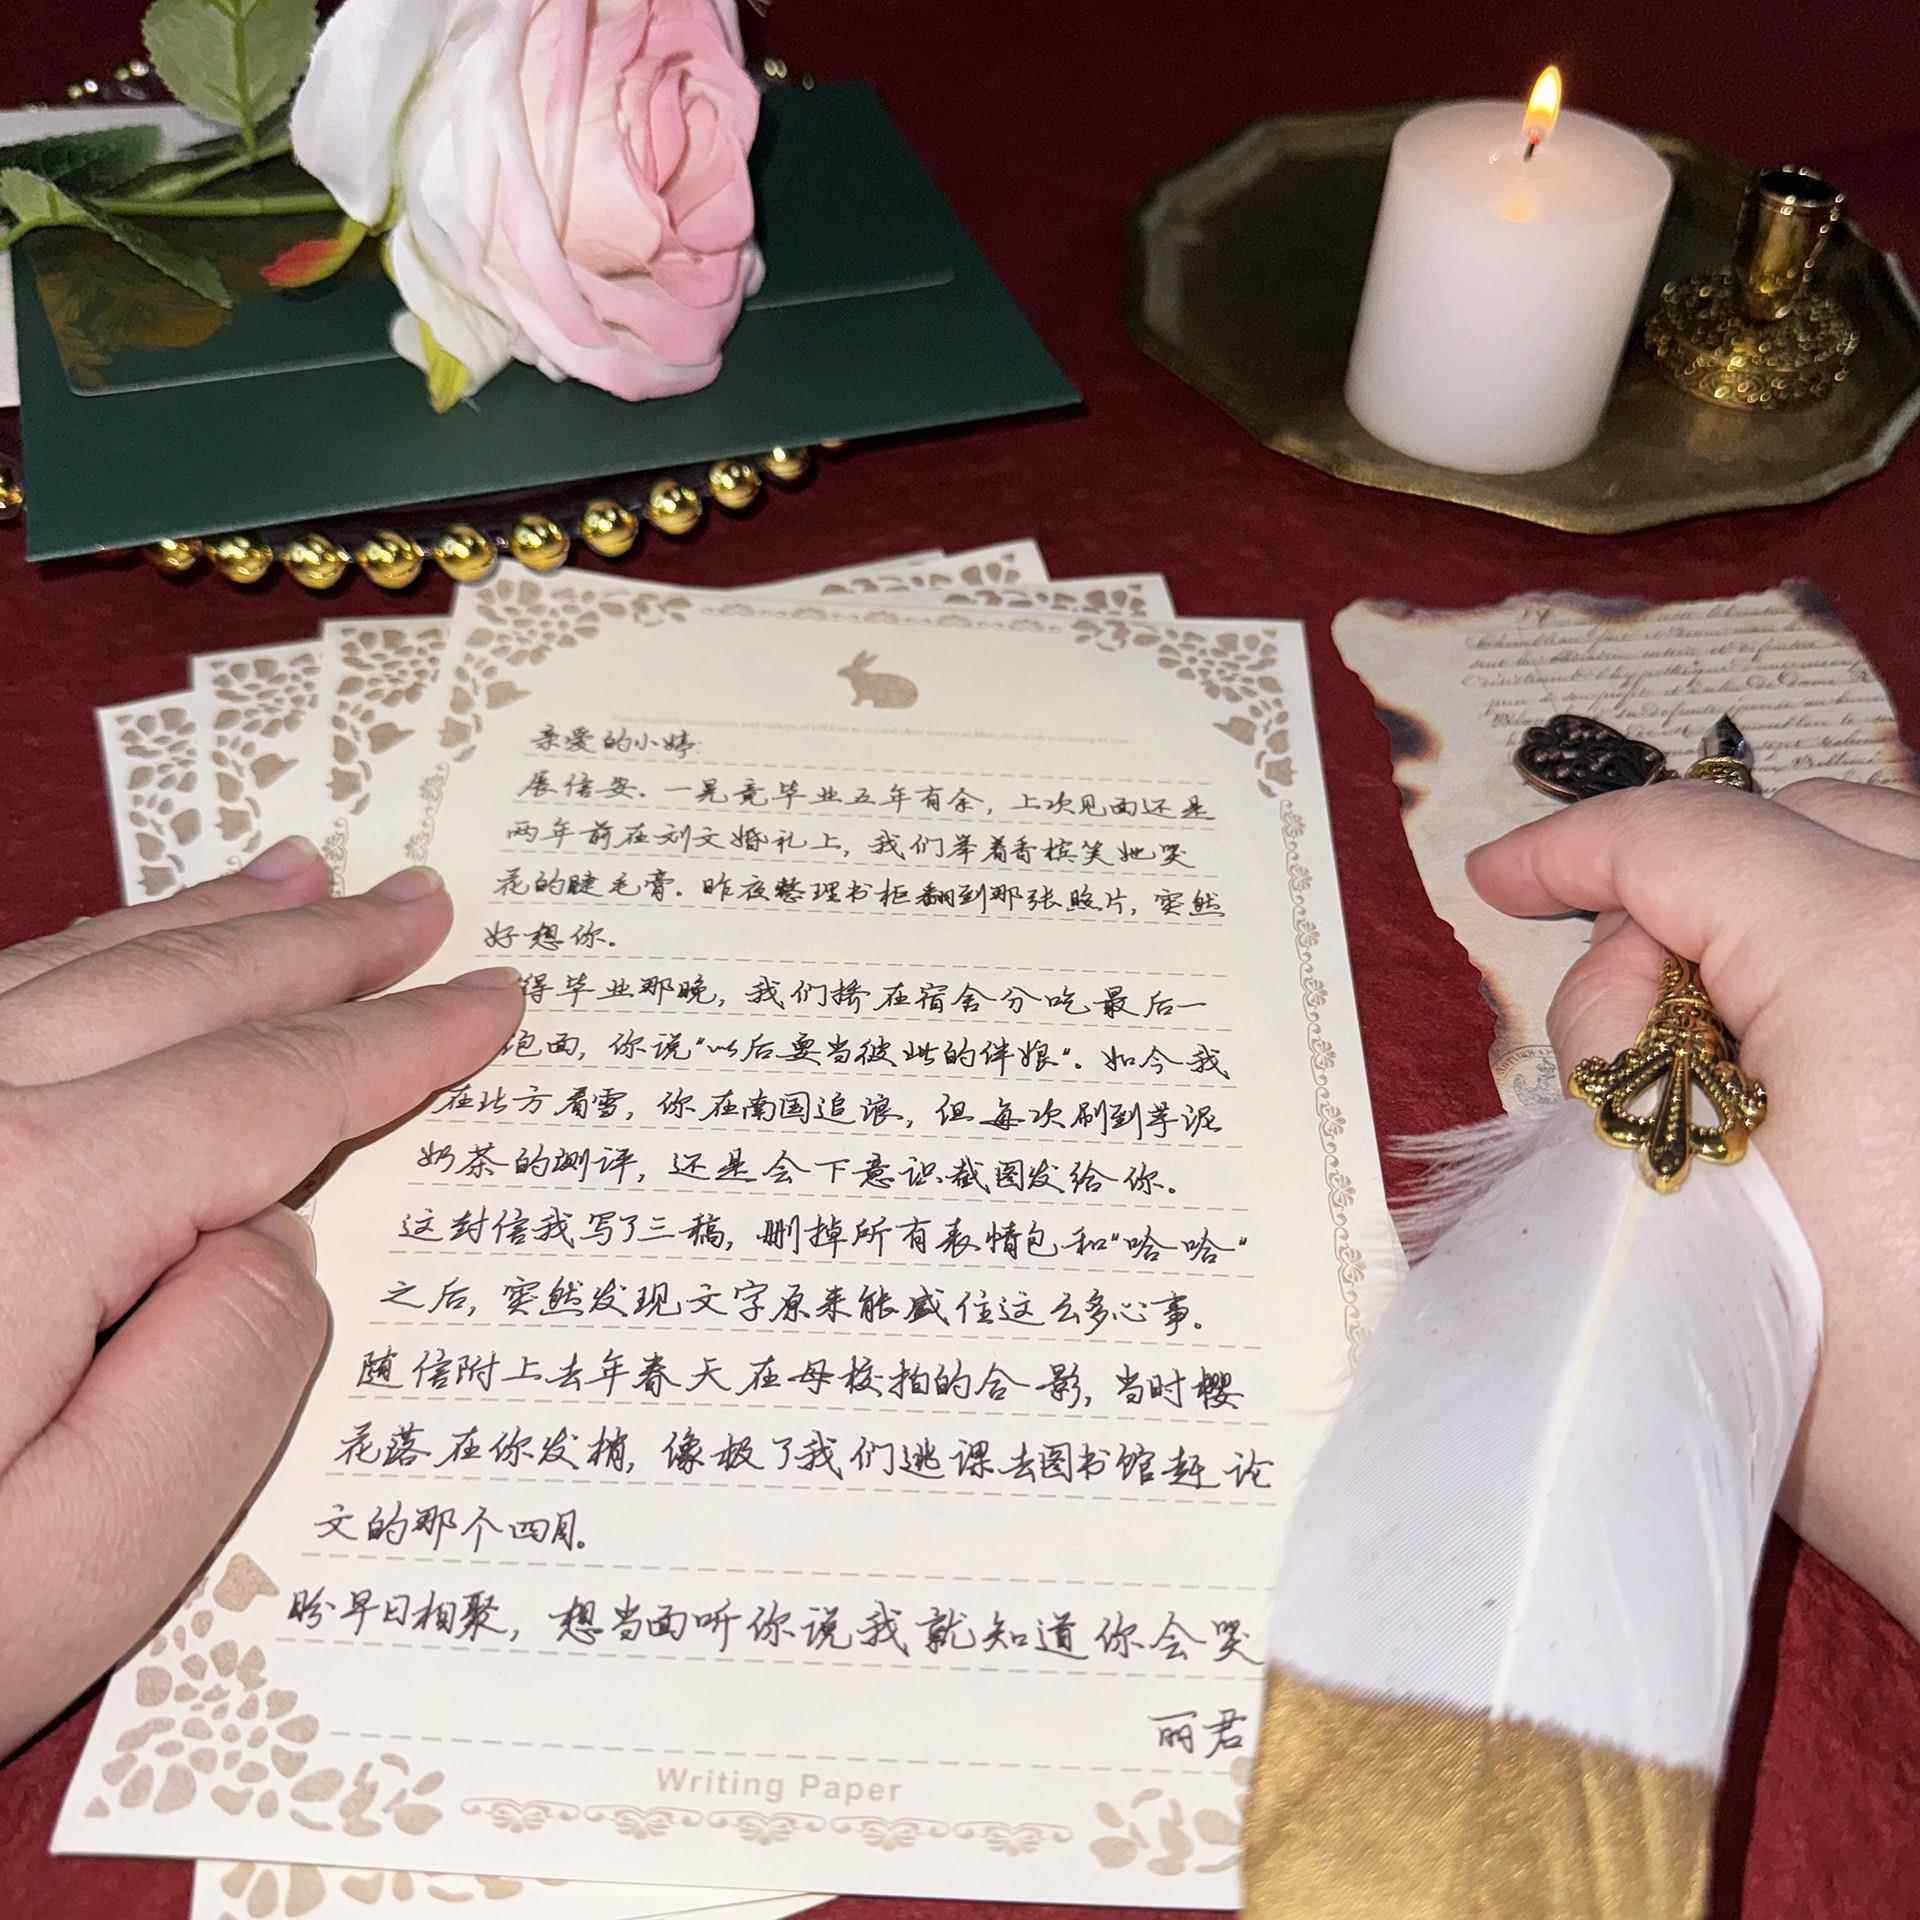 亲爱的小婷:
展信安。一晃竟毕业五年有余，上次见面还是
两年前在刘文婚礼上，我们举着香槟笑她哭
花的睫毛膏。昨夜整理书柜翻到那张照片，突然
好想你。
得毕业那晚，我们挤在宿舍分吃最后一
泡面，你说"以后要当彼此的伴娘"。如今我
在北方看雪，你在南国追浪，但每次刷到芋泥
奶茶的测评，还是会下意识截图发给你。
这封信我写了三稿，删掉所有表情包和"哈哈"
之后，突然发现文字原来能盛住这么多心事。
随信附上去年春天在母校拍的合影，当时樱
花落在你发梢，像极了我们逃课去图书馆赶论
文的那个四月。
盼早日相聚，想当面听你说我就知道你会哭
丽君
Writing Paper